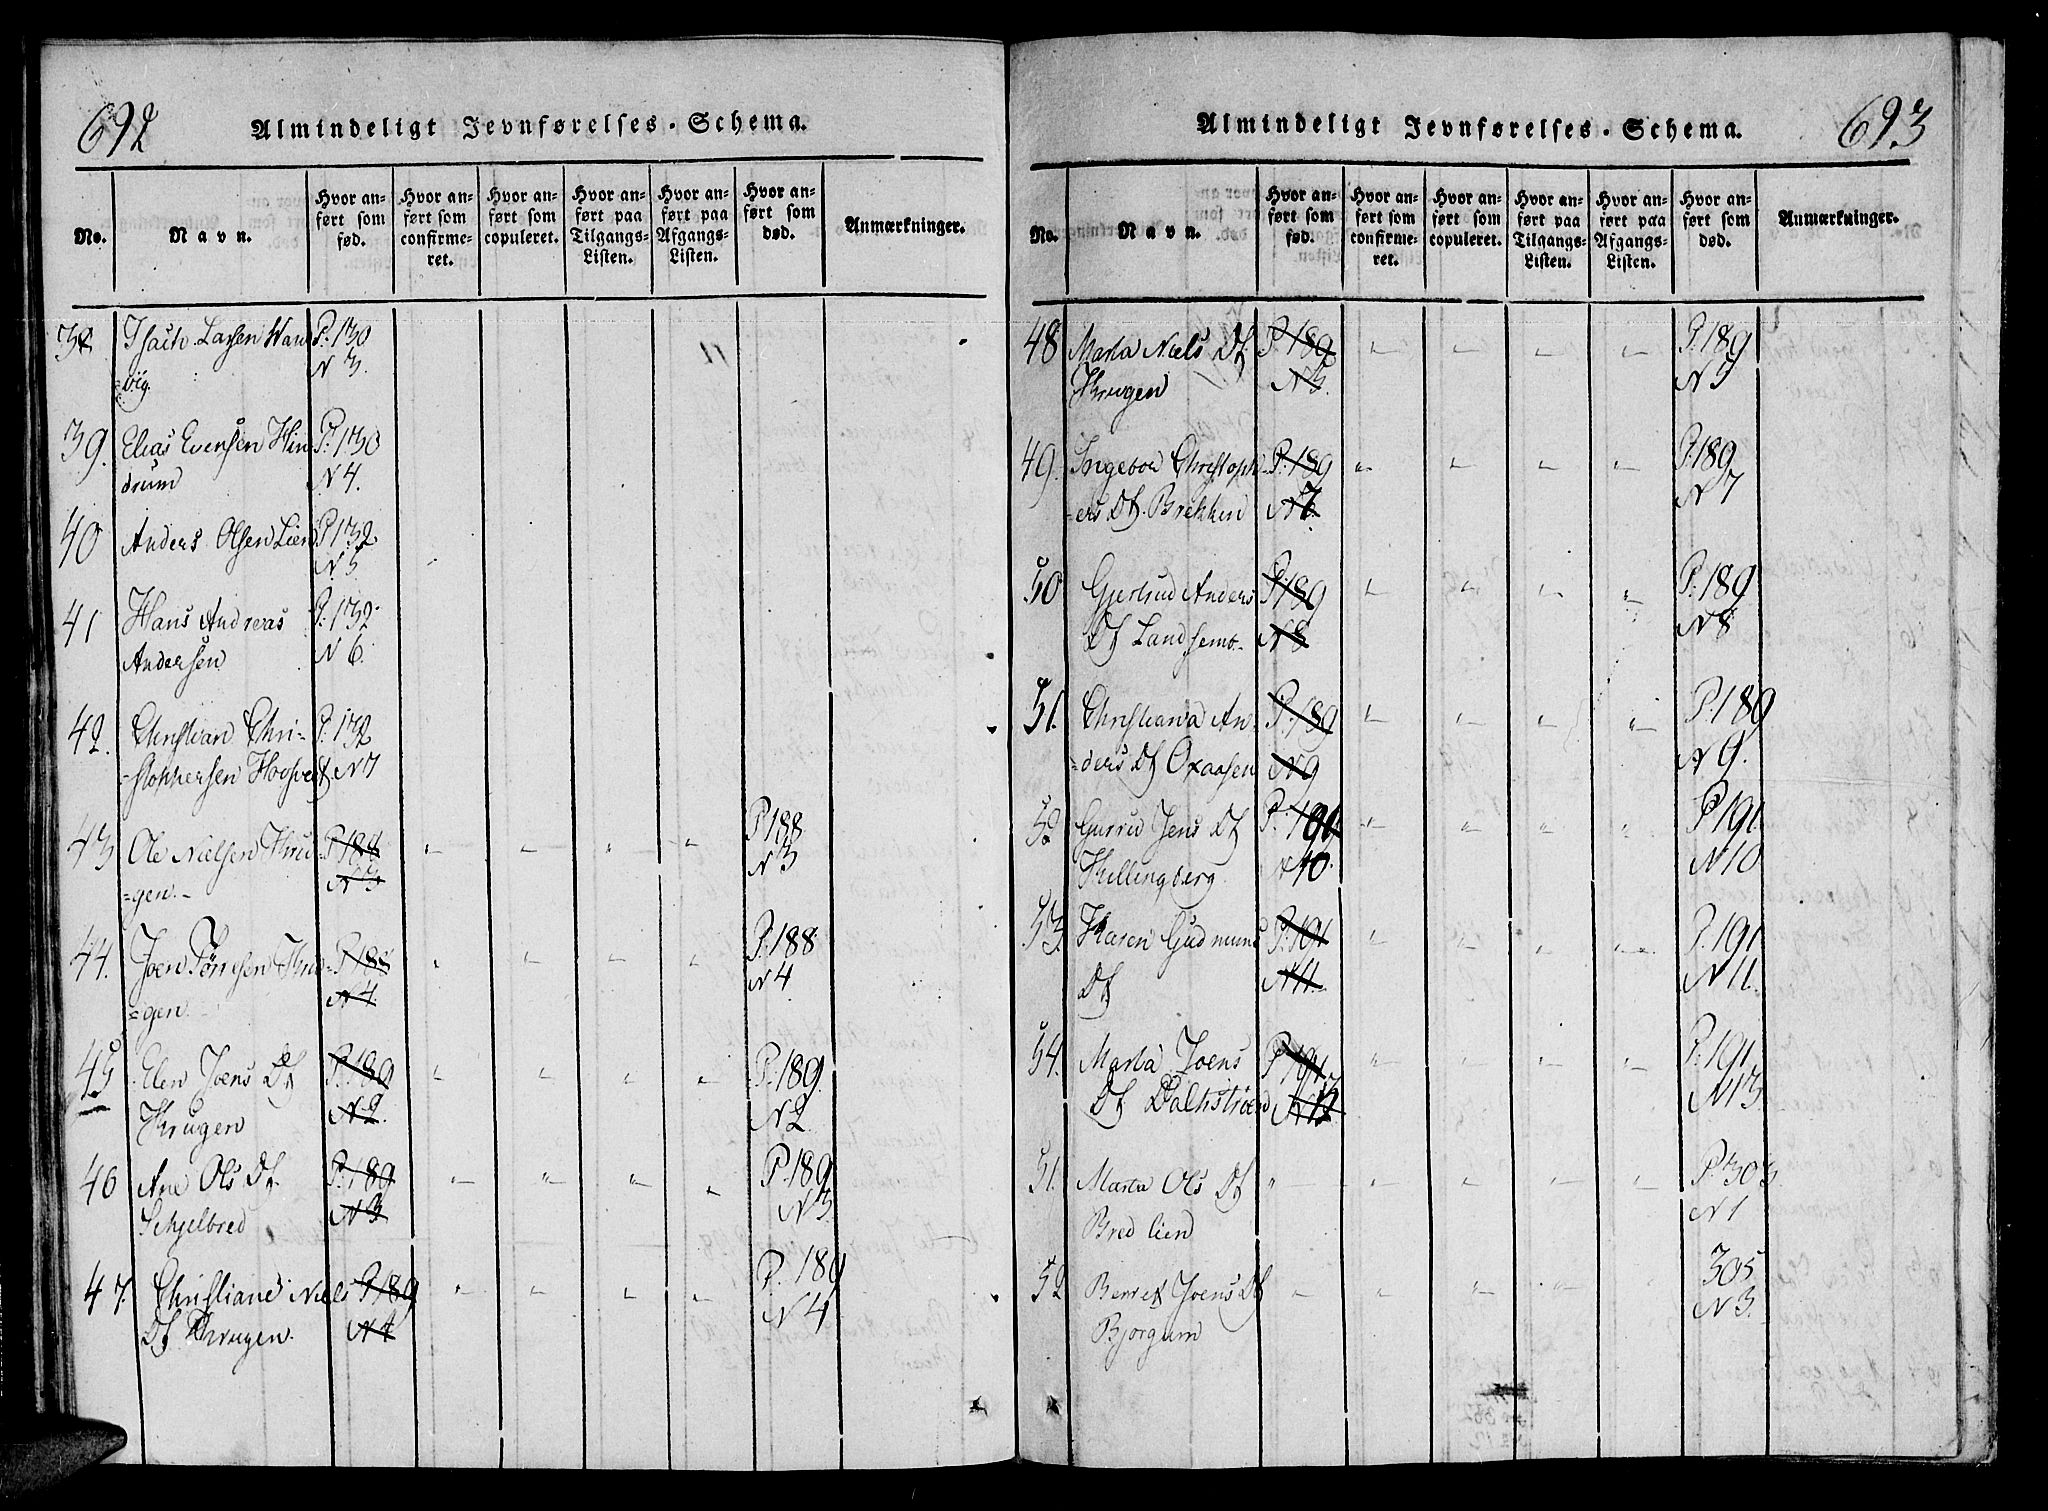 692
Almindeligt Jevnførelses-Schema.
No.
Navn.
Hvor anført som fød.
Hvor anført som confirmeret.
Hvor anført som copuleret.
Hvor anført paa Tilgangs-Listen.
Hvor anført paa Afgangs-Listen.
Hvor anført som død.
Anmærkninger.
38 Isach Larsen Wan P. 130
=vig. N 3.
39. Elias Evensen Hin P. 130
drum N 4.
40 Anders Olsen Lien P 132
N 5
41 Hans Andreas P. 132
Andersen N 6.
42. Christian Chri- P. 132
=stophersen N 7
43 Ole Nielsen Kru P 188 " " " " P. 188
=gen.- N 3 N 3
44. Joen Tørresen Kru- P 188 " " " " P. 188
=gen N 4 N 4
45 Elen Joens Df P. 189 " " " " P. 189.
Krugen N 2. N 2
46 Ane Ols Df. P. 189 " " " " P. 189
Schjelbred N 3 N 3.
47. Christiane Niels P 189 " " " " P. 189
Df Krugen. N 4 N 4
693
Almindeligt Jevnførelses-Schema.
No.
Navn.
Hvor anført som fød.
Hvor anført som confirmeret.
Hvor anført som copuleret.
Hvor anført paa Tilgangs-Listen.
Hvor anført paa Afgangs-Listen.
Hvor anført som død.
Anmærkninger.
48 Marta Niels Df P. 189 " " " " P. 189
Krugen N 5. N 5
49. Ingebor Christoph P. 189 " " " " P. 189
=ers Df. Brekken N 7. N 7
50 Gjertrud Anders P. 189 " " " " P. 189
Df Landsemo.- N 8 N 8
51. Christiana An- P. 189 " " " " P. 189
=ders Df Oxaasen N 9 N 9.
52 Gurru Jens Df P. 191 " " " " P. 191
Hellingberg N 10. N 10
53. Karen Gudmund P. 191 " " " " P. 191
Df N 11. N 11.
54. Marta Joens P 191 " " " " P. 191
Df N 13
51. Marta Ols Df " " " " " P. 305
Bredlien N 1
52 Berret Joens Df " " " " " 305
Bjorgum N 3.